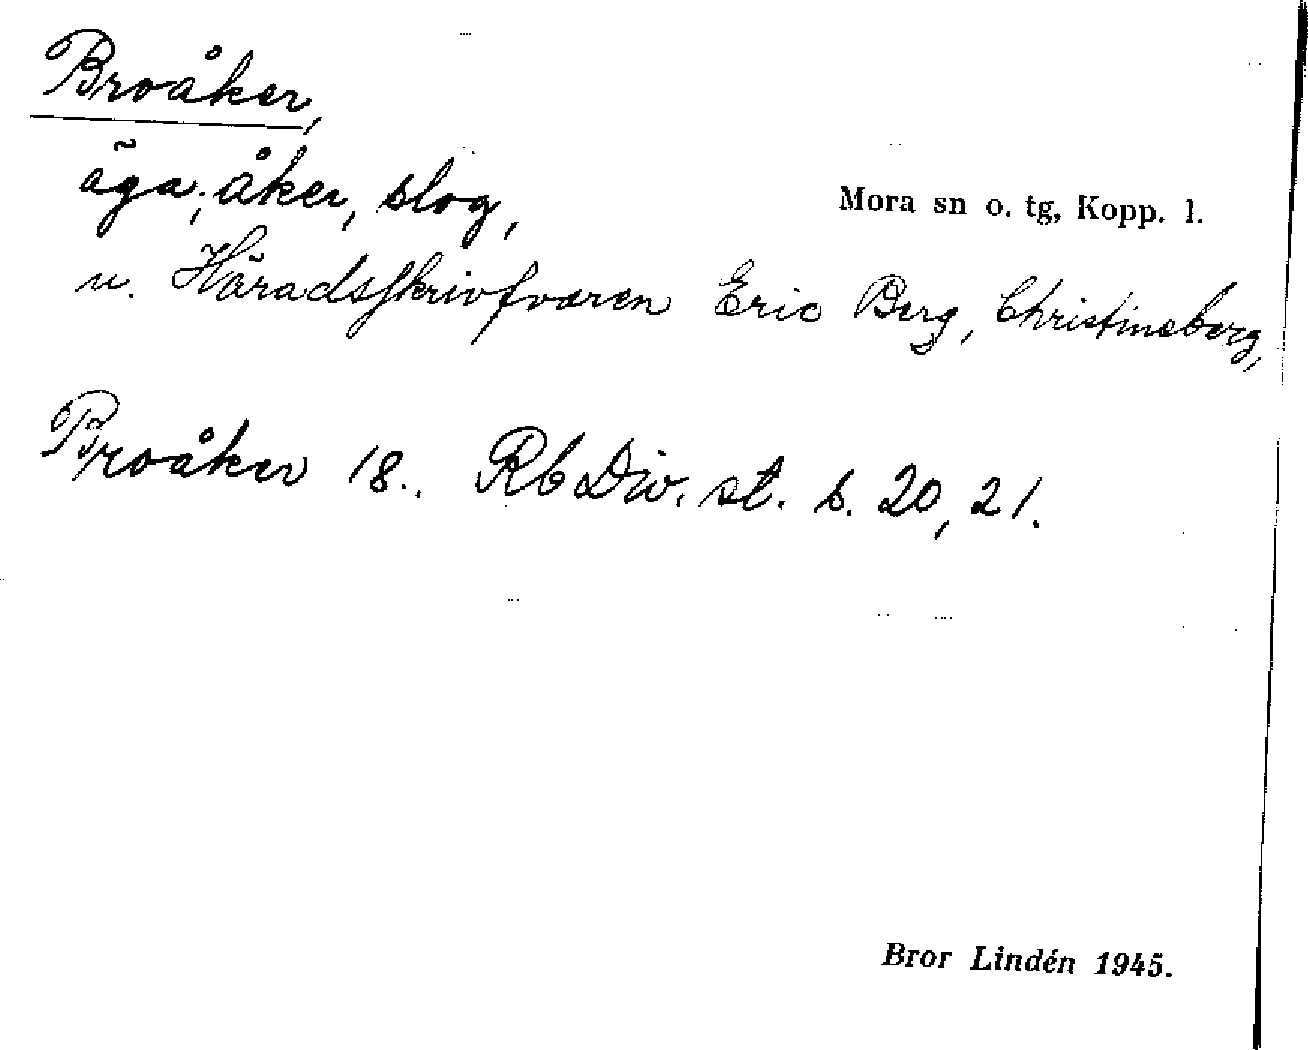 Broåker,
äga; åker, slog,
Mora sn o. tg, Kopp. l.
u. Häradsskrivfvaren Eric Berg, Christineberg,
Broåker 18.. Rb Div. st. s. 20, 21.
Bror Lindén 1945.